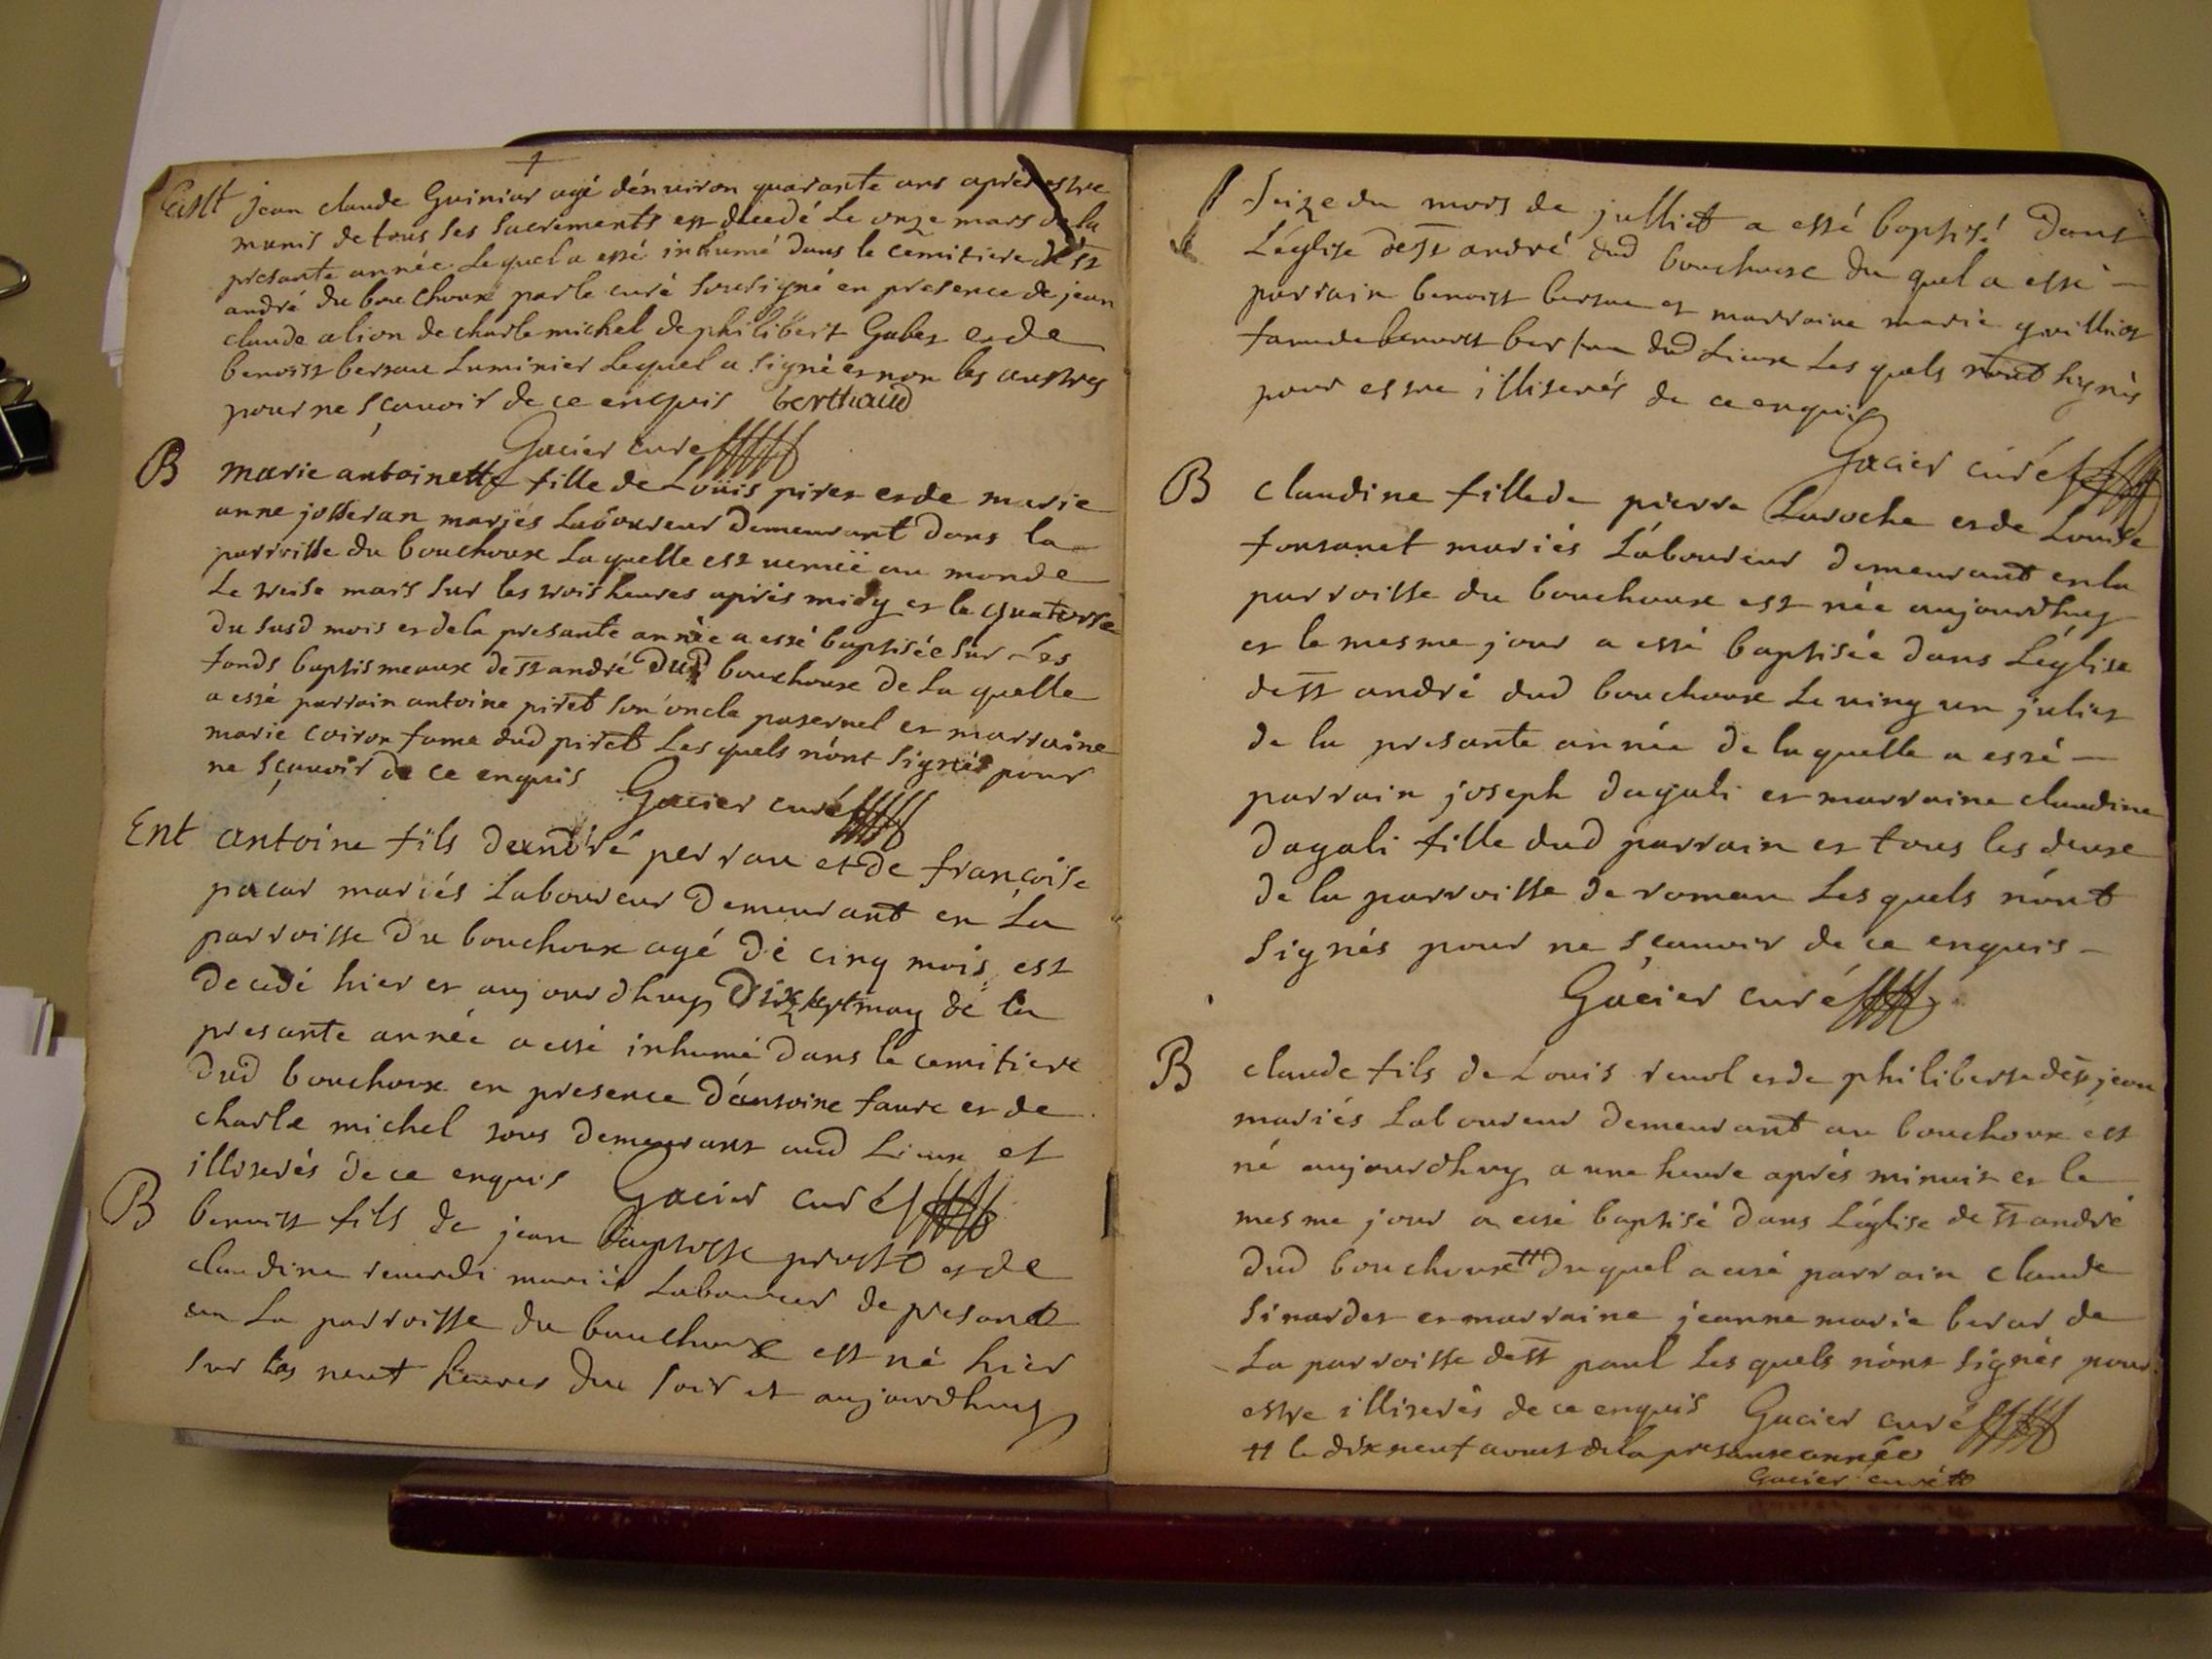 Ent jean claude Guiniar agé dénuiron quarante ans aprés estre
munis de tous ses sacrements est décedé Le onze mars de la
presante année Lequel a esté inhumé dans le cemitiere de st
andré du bouchoux par le curé sousigné en presence de jean
claude alion de charle michel de philibert Gabet et de
benoist bertau Luminier Lequel a signé et non les austres
pour ne sçauoir de ce enquis berthaud
Gacier curé
B marie antoinette fille de Loüis piret et de marie
anne josseran mariés Laboureur demeurant dans la
parroisse du bouchoux Laquelle est uenüe au monde
Le treise mars sur les trois heures aprés midy et le quatorse
du susd mois et de la presante année a esté baptisée sur Les
fonds baptismeaux de st andré dud bouchoux de La quelle
a esté parrain antoine piret son oncle paternel et marraine
marie coiron fame dud piret Les quels nónt signés pour
ne sçauoir de ce enquis Gacier curé
Ent antoine fils dandré perrau et de françoise
pacar mariés Laboureur demeurant en La
parroisse du bouchoux agé de cinq mois est
decedé hier et aujourdhuy dixsept may de la
presante année a esté inhumé dans le cemitiere
dud bouchoux en presence dántoine faure et de
charle michel tous demeurans aud Lieux et
illiterés de ce enquis Gacier curé
B benoist fils de jean baptiste prost et de
claudine reuerdi mariés Laboureur de presant
en La parroisse du bouchoux est né hier
sur les neuf heures du soir et aujourdhuy
seize du mois de julliet a esté baptisé dans
Léglise de st andré dud bouchoux du quel a esté
parrain benoist bertau et marraine marie guilliot
fame de benoist bertau dud Lieux Les quels nónt signés
pour estre illiterés de ce enquis
Gacier curé
B claudine fille de pierre Laroche et de Louise
fontanet mariés Laboureur demeurant en la
parroisse du bouchoux est née aujourdhuy
et le mesme jour a esté baptisée dans Léglise
de st andré dud bouchoux Le uing un juliet
de la presante année de laquelle a esté
parrain joseph dagali et marraine claudine
dagali fille dud parrain et tous les deux
de la parroisse de roman Les quels nónt
signés pour ne sçauoir de ce enquis
Gacier curé
B claude fils de Louis renol et de philiberte de st jean
mariés Laboureur demeurant au bouchoux est
né aujourdhuy a une heure aprés minuit et le
mesme jour a esté baptisé dans Léglise de st andré
dud bouchoux tt duquel a esté parrain claude
sinardet et marraine jeanne marie berar de
La parroisse de st paul Les quels nónt signés pour
estre illiterés de ce enquis Gacier curé
tt le dix neuf aoust de la presante année
Gacier curé